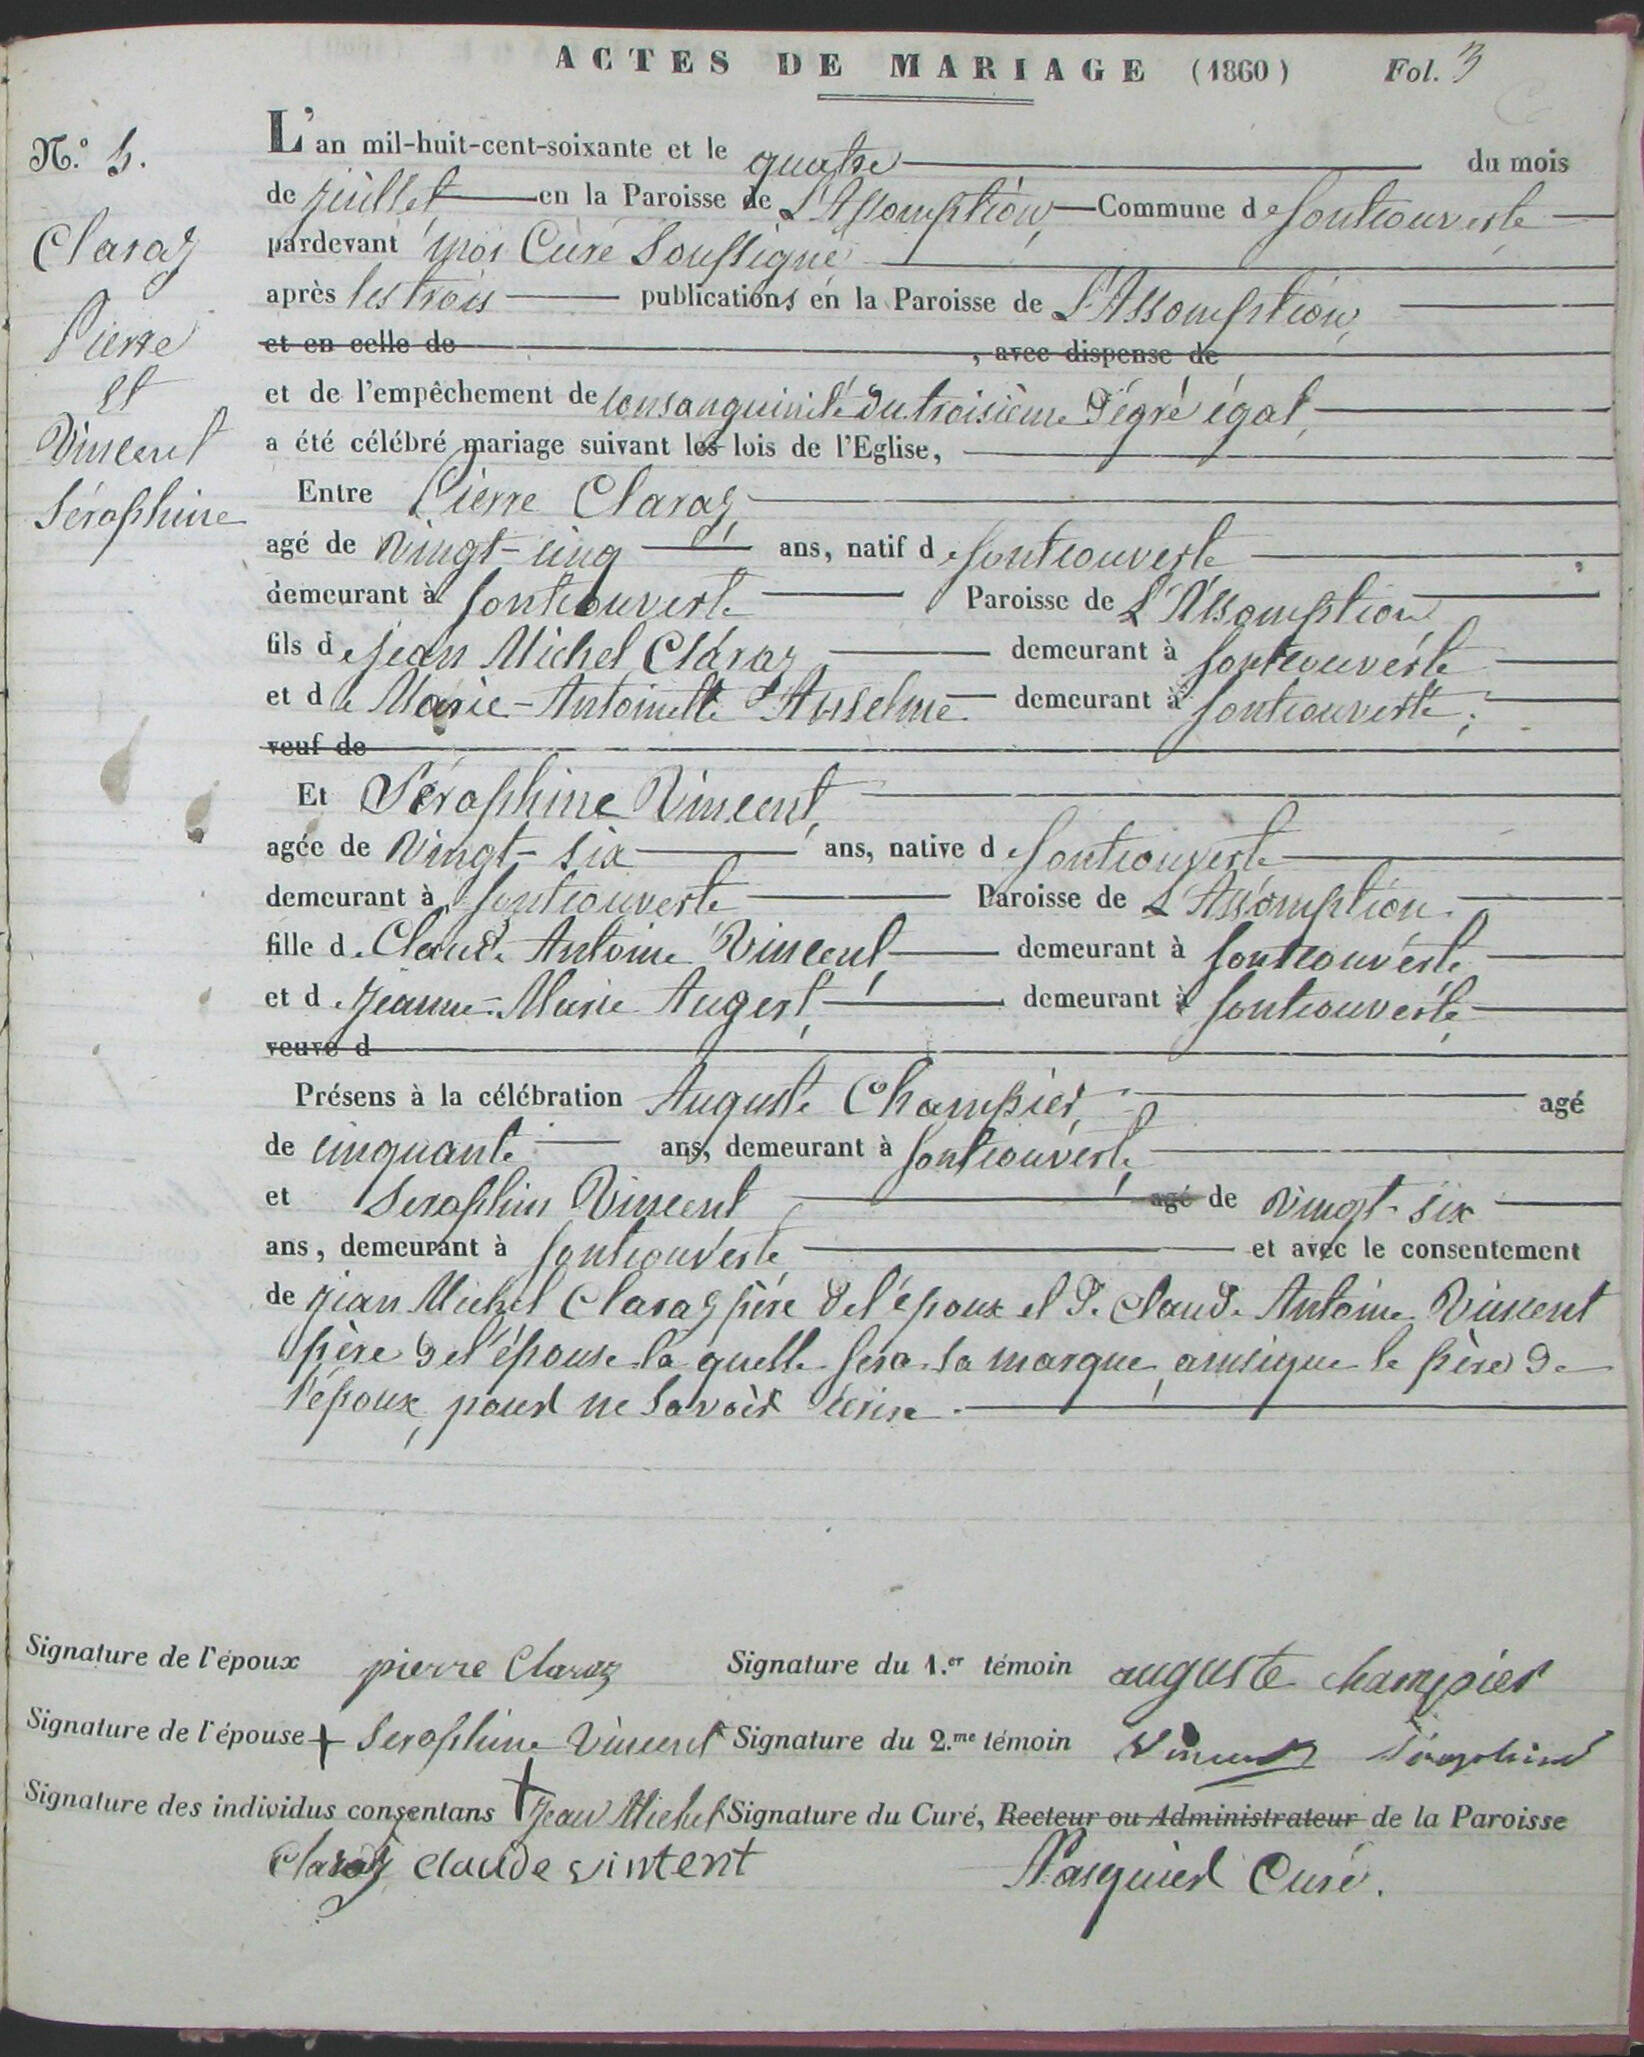 ACTES DE MARIAGE (1860) Fol. 3
N.º 5.
Claraz
Pierre
et
Vincent
Séraphine
L'an mil-huit-cent-soixante et le quatre du mois
de juillet en la Paroisse de L'Assomption, Commune de fontcouverte
pardevant moi Curé Soussigné
après les trois publications en la Paroisse de L'Assomption,
et en celle de , avec dispense de
et de l'empêchement de consanguinité du troisième Dégré égal,
a été célébré mariage suivant les lois de l'Eglise,
Entre Pierre Claraz,
agé de vingt-cinq ans, natif de fontcouverte ,
demeurant à fontcouverte Paroisse de L'Assomption
fils de jean Michel Claraz demeurant à fontcouverte
et de Marie-Antoinette Anselme demeurant à fontcouverte;
veuf de
Et Séraphine Vincent,
agée de vingt-six ans, native de fontcouverte
demeurant à fontcouverte Paroisse de L'Assomption.
fille de Claude Antoine Vincent, demeurant à fontcouverte
et de jeanne-Marie Augert, demeurant à fontcouverte,
veuve d
Présens à la célébration Auguste Champier, agé
de cinquante ans, demeurant à fontcouverte,
et Seraphin Vincent, agé de vingt-six
ans, demeurant à fontcouverte et avec le consentement
de jean Michel Claraz père de l'époux et de Claude Antoine Vincent
père de l'épouse la quelle fera sa marque, ainsique le père de
l'époux, pour ne savoir écrire.
Signature de l'époux pierre Claraz Signature du 1.er témoin auguste champier
Signature de l'épouse + Seraphine Vincent Signature du 2.me témoin Vincent Séraphin
Signature des individus consentans + Jean Michel Signature du Curé, Recteur ou Administrateur de la Paroisse
Claraz claude vintent Pasquier Curé.